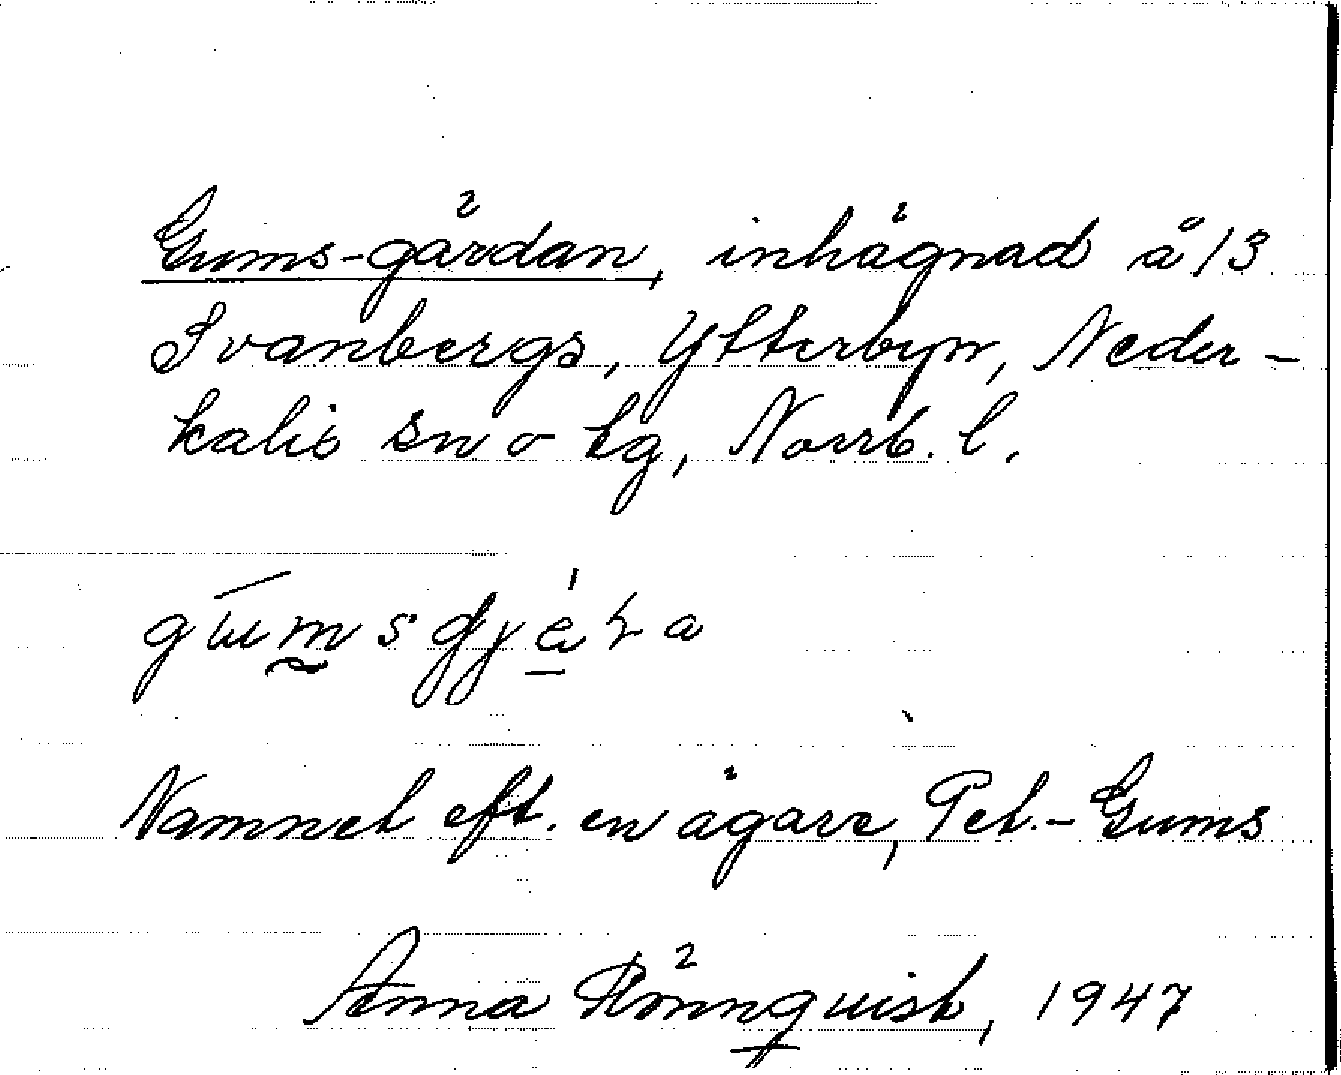 Gums-gärdan, inhägnad å 13
Svanbergs, Ytterbyn, Neder-
kalix sn o hg, Norrb. l.
Namnet eft. en ägare, Pet.-Gums
Anna Rönnquist, 1947